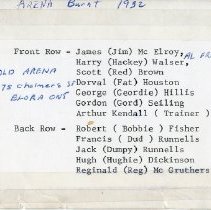 ARENA Burnt 1932
Front Row - James (Jim) Mc Elroy, AL FR
Harry (Hackey) Walser,
OLD ARENA Scott (Red) Brown
75 Chalmers ST Dorval (Pat) Houston
ELORA ONT George (Geordie) Hillis
Gordon (Gord) Seiling
Arthur Kendall ( Trainer )
Back Row - Robert ( Bobbie ) Fisher
Francis ( Dud ) Runnells
Jack (Dumpy) Runnells
Hugh (Hughie) Dickinson
Reginald (Reg) Mc Gruthers